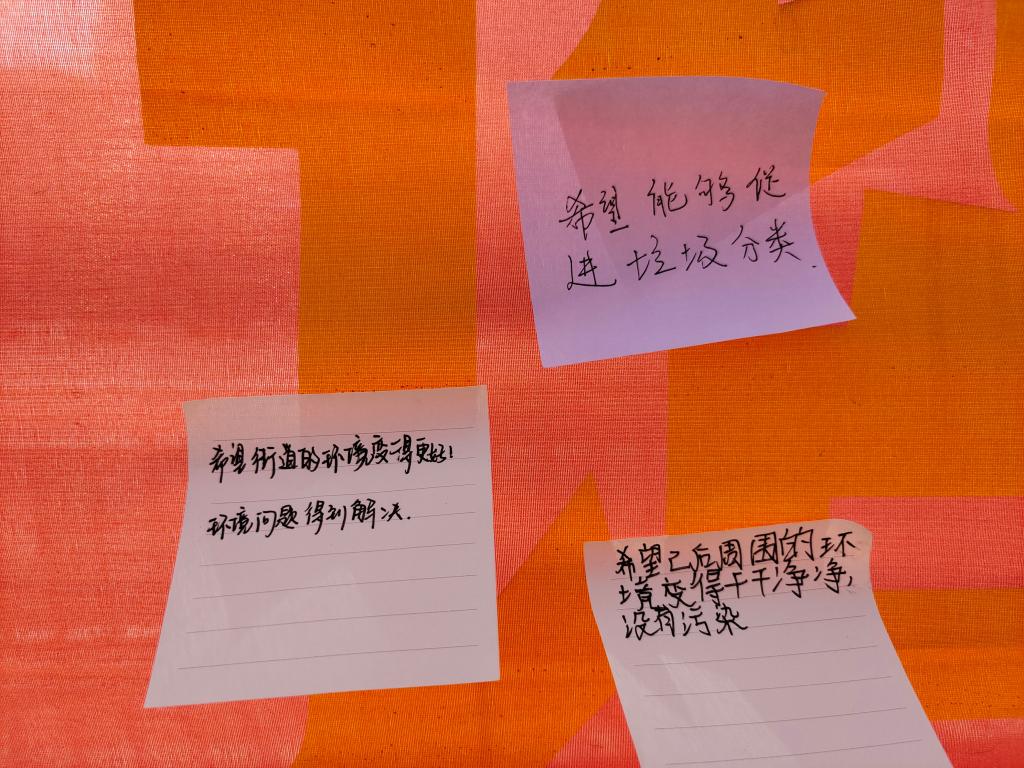 希望能够促
进垃圾分类.
希望街道的环境变得更好!
环境问题得到解决.
希望已后周围的环
境变得干干净净,
没有污染